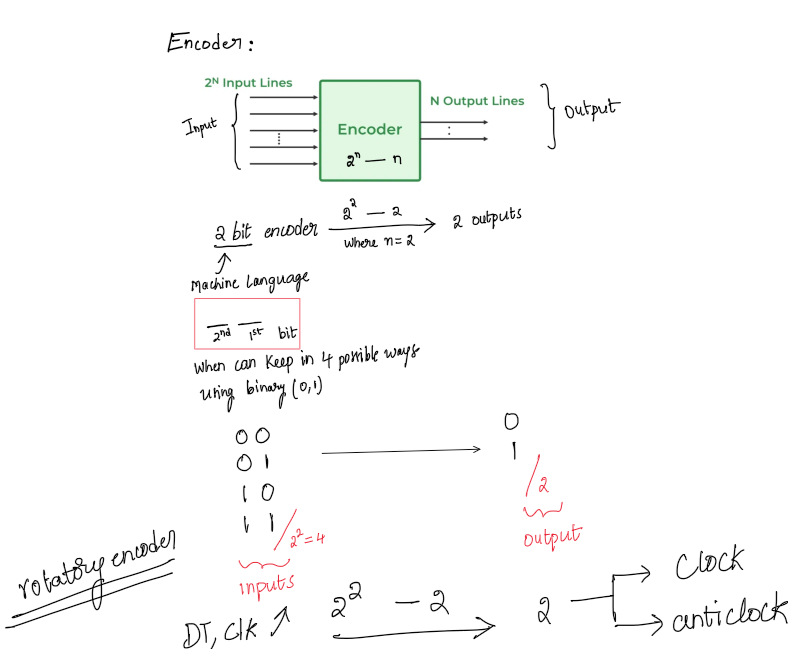 Encoder:
2ᴺ Input Lines
N Output Lines
Input
Output
Encoder
2ⁿ — n
2 bit encoder
2² — 2
where n=2
2 outputs
Machine Language
2nd 1st bit
when can keep in 4 possible ways
using binary (0,1)
0 0
0 1
1 0
1 1
/2²=4
inputs
0
1
/2
output
rotatory encoder
DT, Clk
2² — 2
2
Clock
anticlock